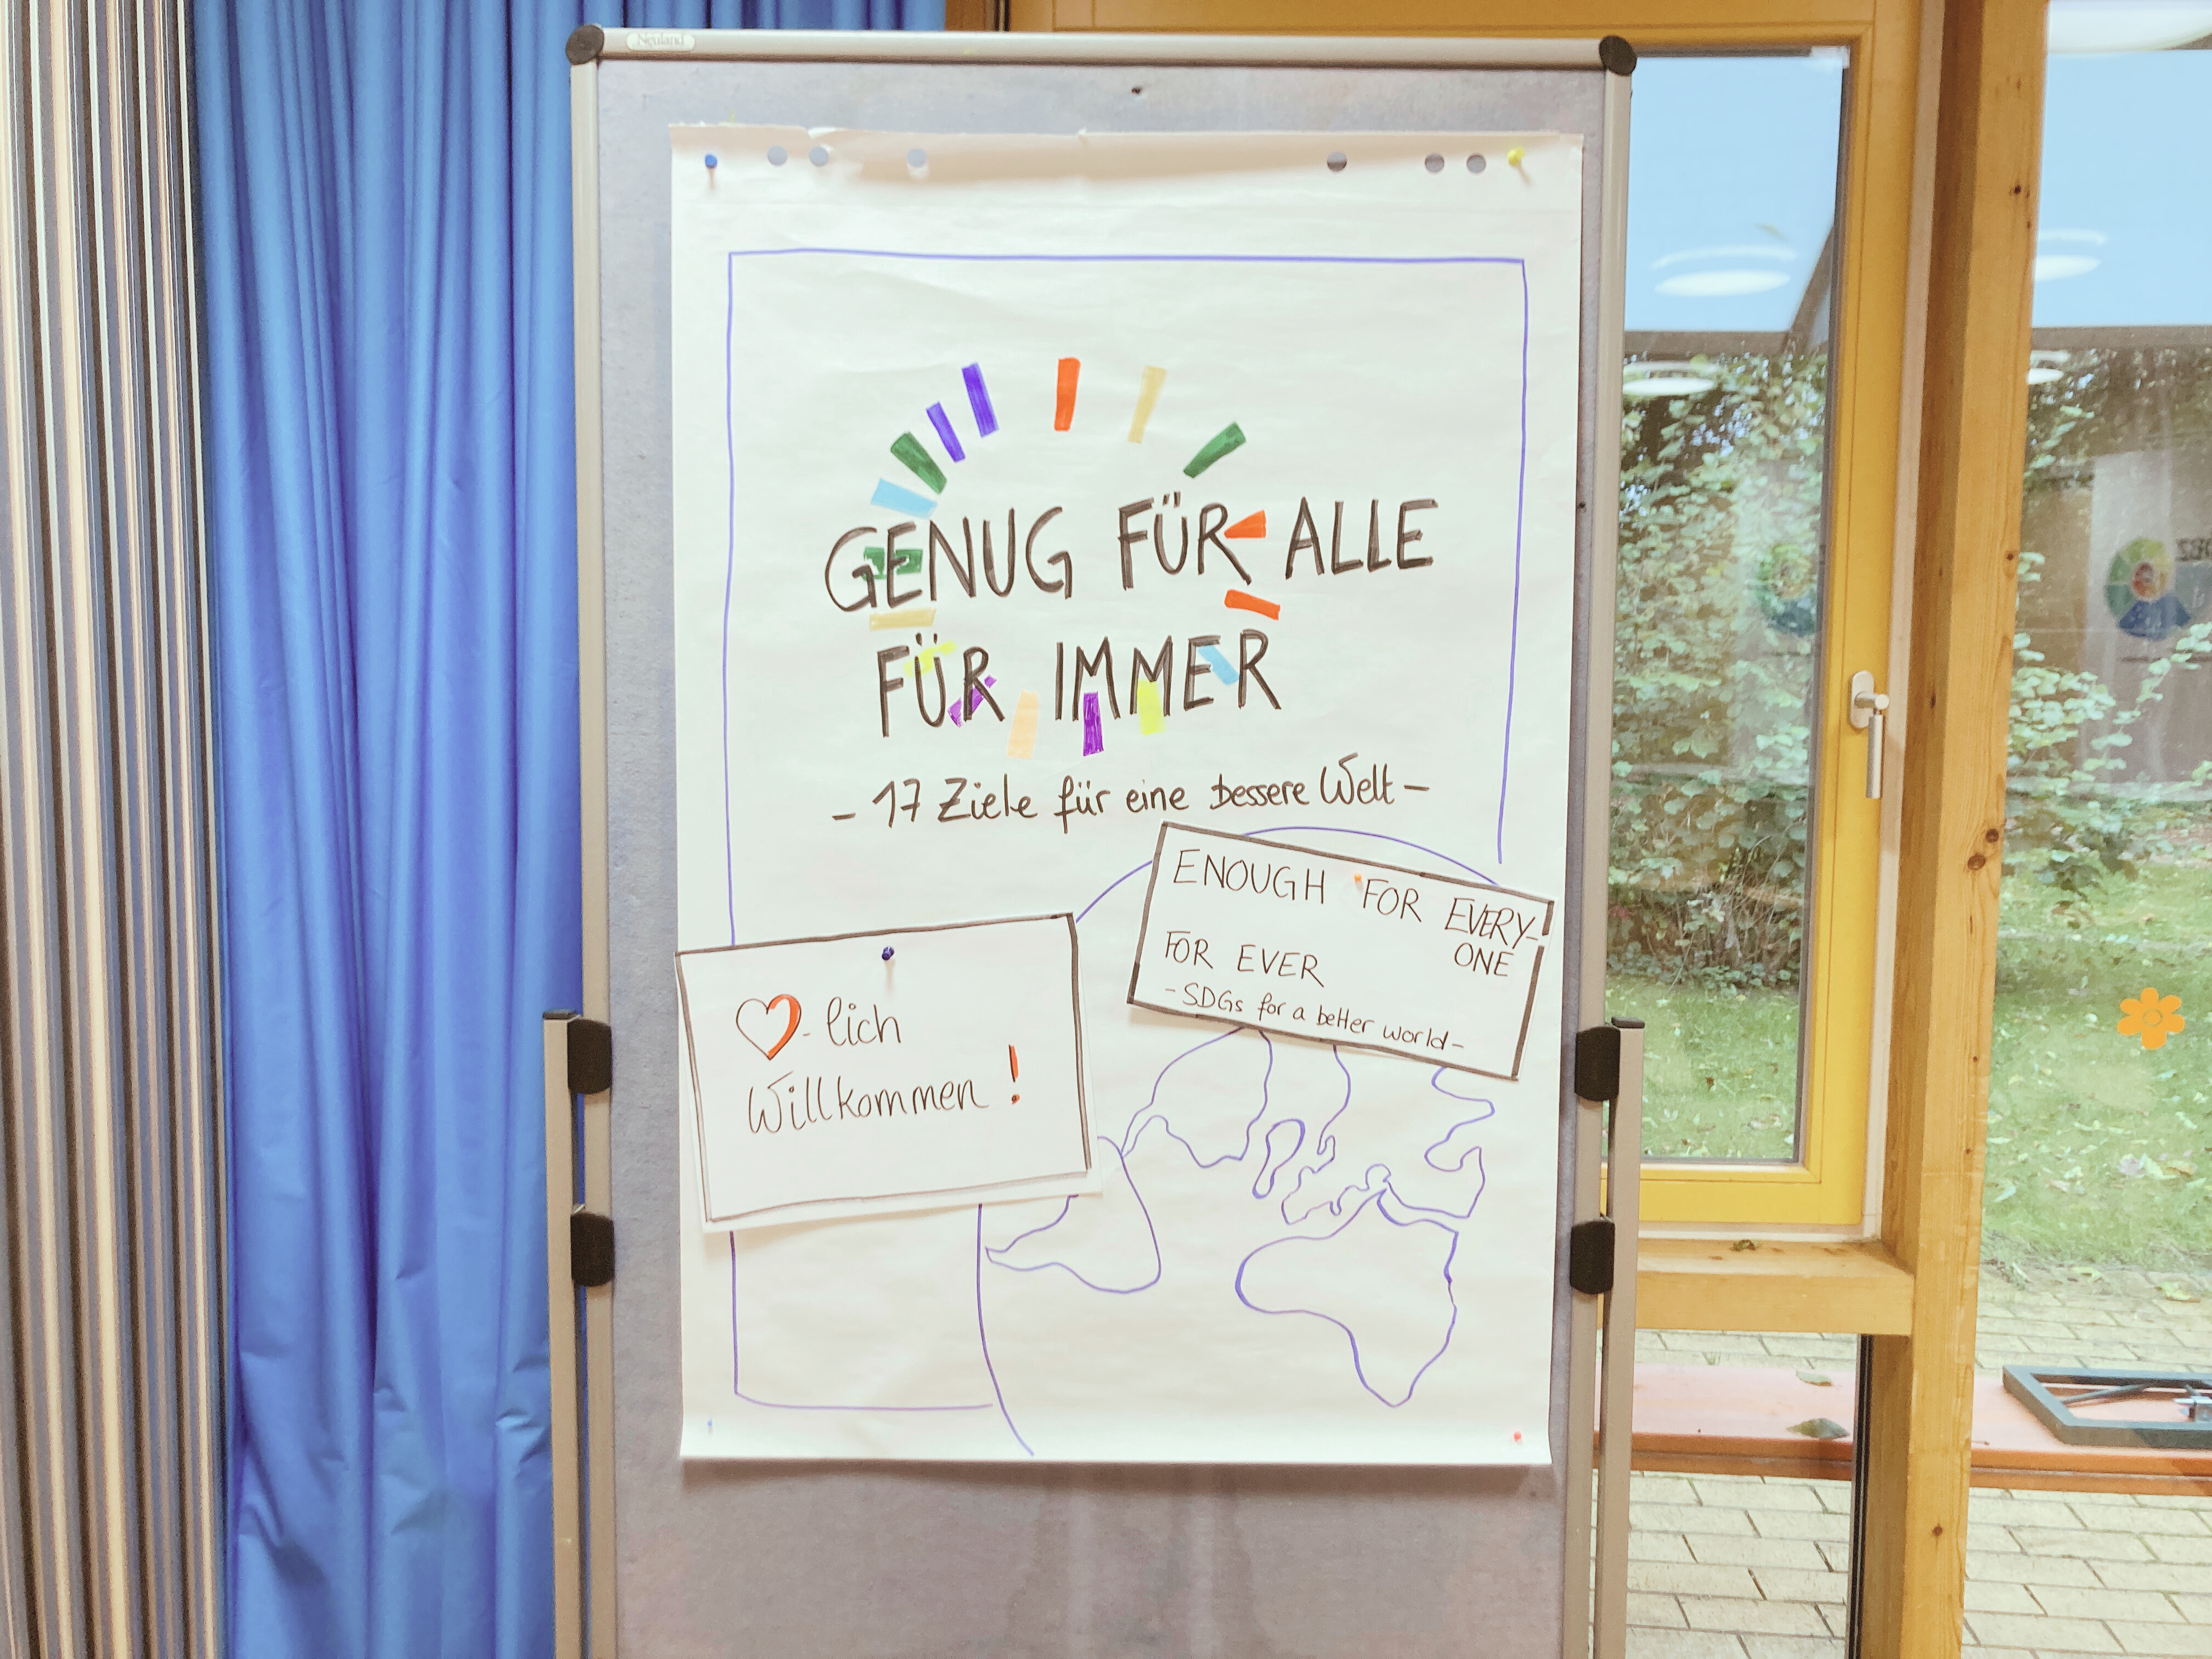 Neuland
GENUG FÜR ALLE
FÜR IMMER
- 17 Ziele für eine bessere Welt -
ENOUGH FOR EVERY-
ONE
FOR EVER
- SDGs for a better world -
-lich
Willkommen !